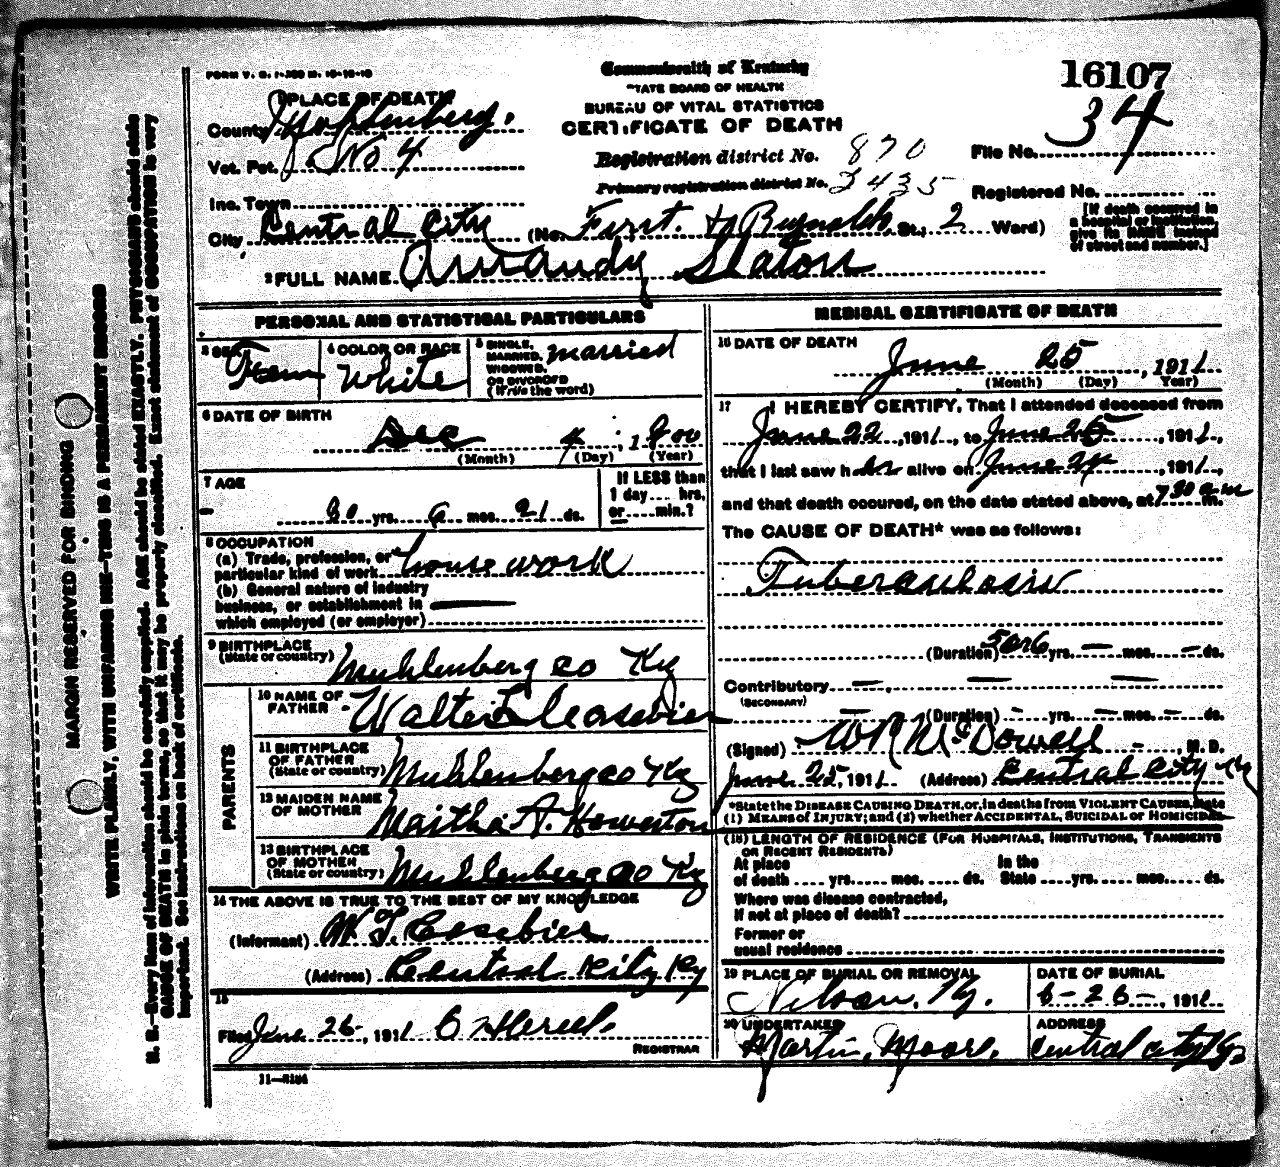 FORM V. S. 1-
16107
34
Commonwealth of Kentucky
STATE BOARD OF HEALTH
BUREAU OF VITAL STATISTICS
CERTIFICATE OF DEATH
1 PLACE OF DEATH
County Muhlenberg.
Vot. Pct. No 4
Inc. Town
City Central City (No. First. & Reynolds St.; 2 Ward)
Registration district No. 870
Primary registration district No. 2435
File No.
Registered No.
[If death occurred in a hospital or institution, give its NAME instead of street and number.]
2 FULL NAME Armandy Slaton
PERSONAL AND STATISTICAL PARTICULARS
3 SEX Fem
4 COLOR OR RACE White
5 SINGLE, MARRIED, WIDOWED, OR DIVORCED (Write the word) married
6 DATE OF BIRTH
Dec 4, 1
(Month) (Day) (Year)
7 AGE
30 yrs. 6 mos. 21 ds.
If LESS than 1 day.... hrs, or.....min.?
8 OCCUPATION
(a) Trade, profession, or particular kind of work house work
(b) General nature of industry business, or establishment in which employed (or employer)
9 BIRTHPLACE (State or country) Muhlenberg co Ky
PARENTS
10 NAME OF FATHER Walter Ceasebier
11 BIRTHPLACE OF FATHER (State or country) Muhlenberg co Ky
12 MAIDEN NAME OF MOTHER Martha A. Howerton
13 BIRTHPLACE OF MOTHER (State or country) Muhlenberg co Ky
14 THE ABOVE IS TRUE TO THE BEST OF MY KNOWLEDGE
(Informant)
(Address) Central City Ky
15
Filed June 26, 1911
REGISTRAR
11—
MEDICAL CERTIFICATE OF DEATH
16 DATE OF DEATH
June 25, 1911
(Month) (Day) (Year)
17 I HEREBY CERTIFY, That I attended deceased from
June 22, 1911, to June 25, 1911,
that I last saw her alive on June 24, 1911,
and that death occured, on the date stated above, at 7 30 a m m.
The CAUSE OF DEATH* was as follows:
Tuberculosis
(Duration) 5 or 6 yrs. — mos. — ds.
Contributory — — —
(SECONDARY)
— (Duration) — yrs. — mos. — ds.
(Signed) WR McDowell, M. D.
June 25, 1911 (Address) Central City Ky
*State the DISEASE CAUSING DEATH, or, in deaths from VIOLENT CAUSES, state
(1) MEANS of INJURY; and (2) whether ACCIDENTAL, SUICIDAL or HOMICIDAL
(18) LENGTH OF RESIDENCE (FOR HOSPITALS, INSTITUTIONS, TRANSIENTS
OR RECENT RESIDENTS)
At place of death .... yrs. .... mos. .... ds. In the State ....yrs. .... mos. .... ds.
Where was disease contracted,
If not at place of death?
Former or
usual residence
19 PLACE OF BURIAL OR REMOVAL
Nelson, Ky.
DATE OF BURIAL
6-26-, 1911
20 UNDERTAKER
Martin, Moore.
ADDRESS
Central city Ky
MARGIN RESERVED FOR BINDING
WRITE PLAINLY, WITH UNFADING INK—THIS IS A PERMANENT RECORD
N. B.—Every item of information should be carefully supplied. AGE should be stated EXACTLY. PHYSICIANS should state
CAUSE OF DEATH in plain terms, so that it may be properly classified. Exact statement of OCCUPATION is very
important. See instructions on back of certificate.